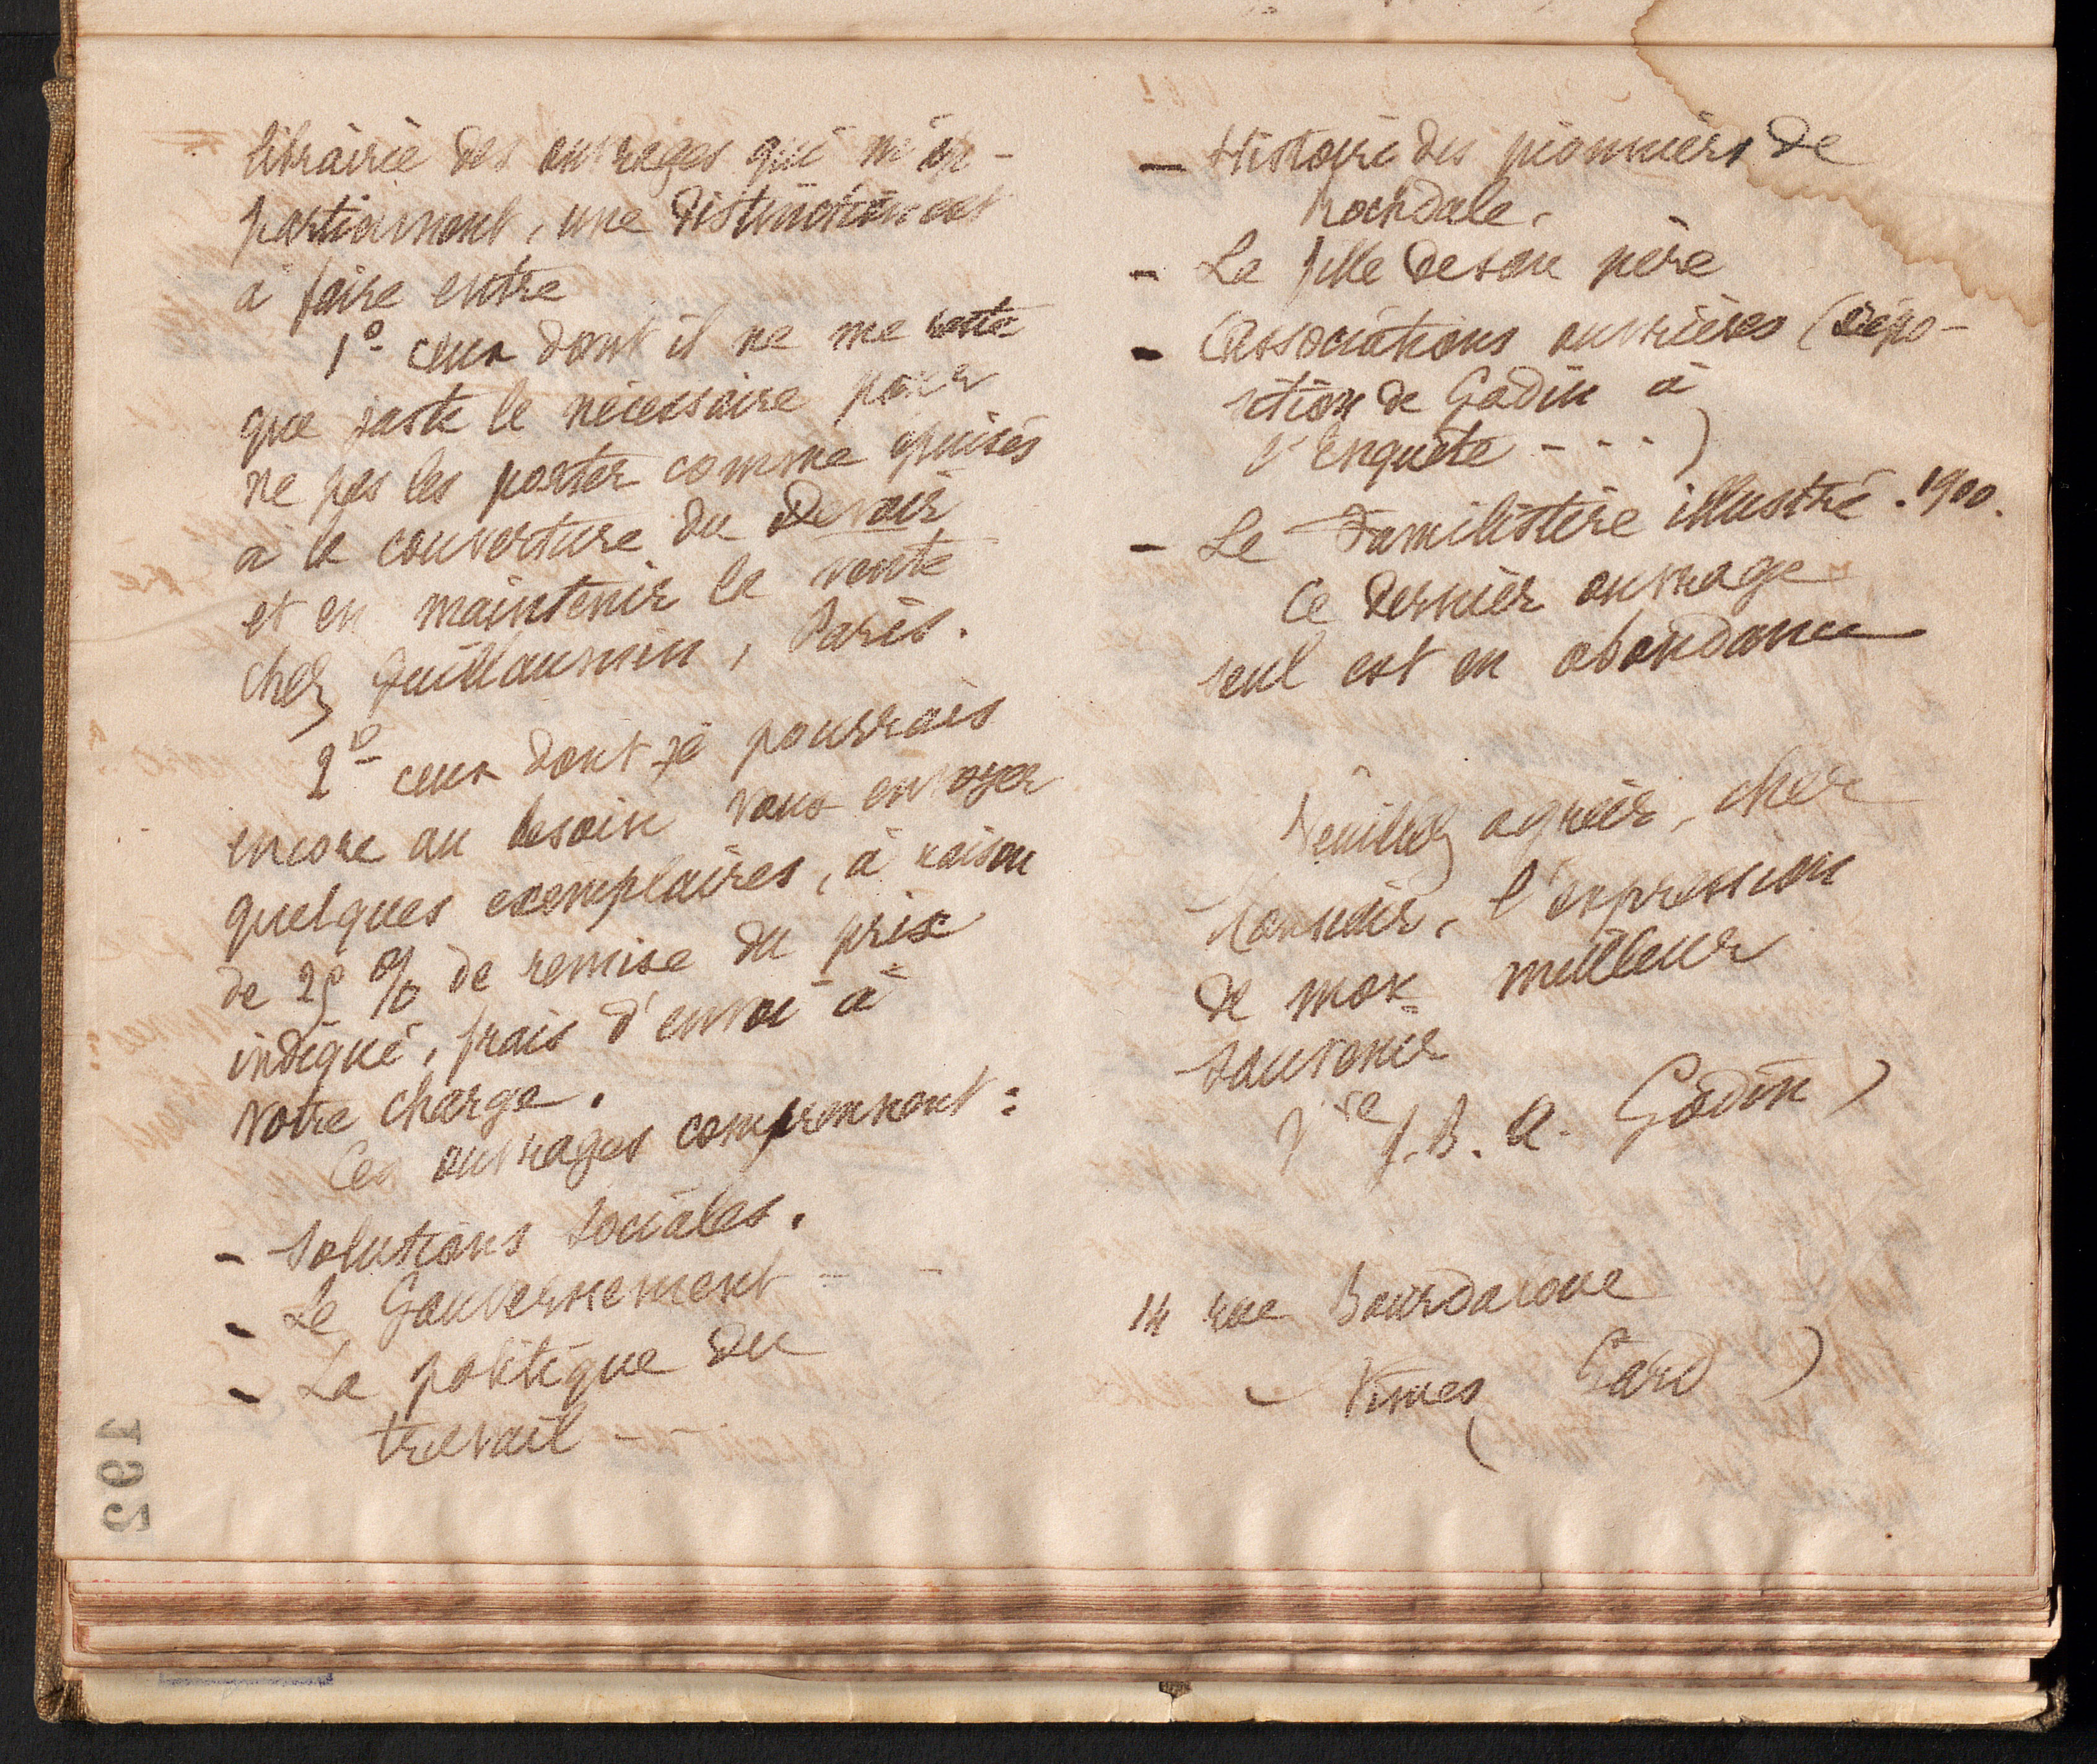 librairie des ouvrages qui m'ap-
partiennent, une distinction est
à faire entre
1º ceux dont il ne me reste
que juste le nécessaire pour
ne pas les porter comme épuisés
à la couverture du Devoir
et en maintenir la vente
chez Guillaumin, Paris.
2º ceux dont je pourrais
encore au besoin vous envoyer
quelques exemplaires, à raison
de 25 % de remise du prix
indiqué, frais d'envoi à
votre charge.
Ces ouvrages comprennent :
- Solutions sociales.
- Le Gouvernement - -
- La politique du
travail - -
- Histoire des pionniers de
Rochdale.
- La fille de son père
- Associations ouvrières (Dépo-
sition de Godin à
l'Enquête - - - )
- Le Familistère illustré. 1900.
Ce dernier ouvrage
seul est en abondance
Veuillez agréer, cher
Monsieur, l'expression
de mon meilleur
souvenir
Vve J. B. A. Godin
14 rue Bourdaloue
Nimes (Gard)
192